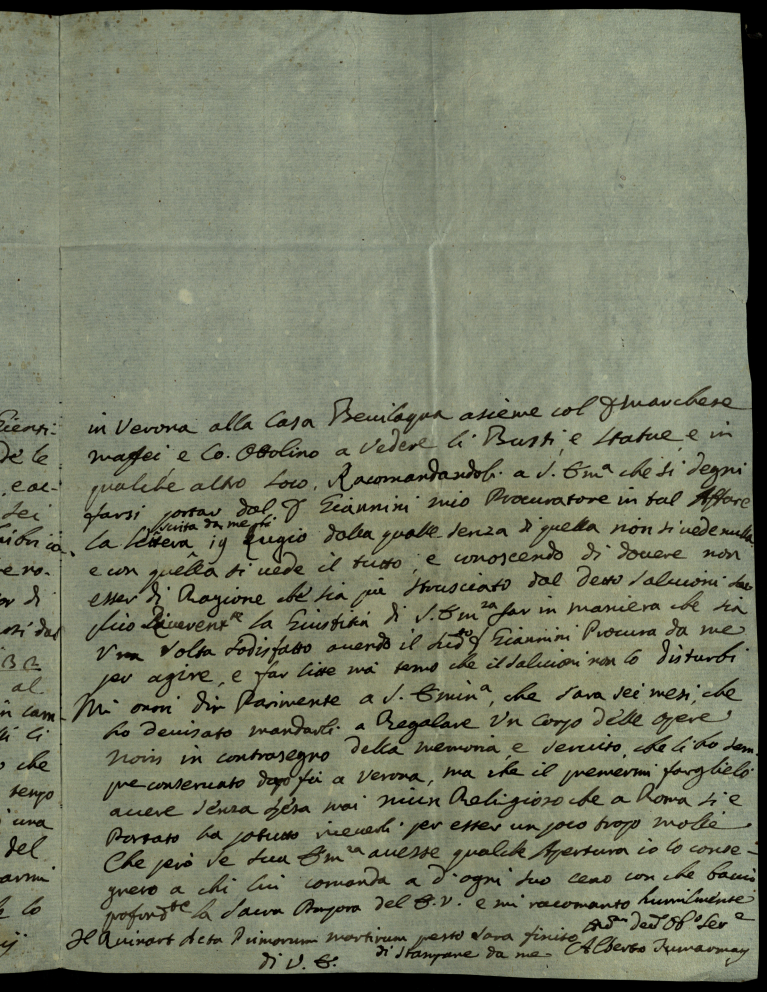 in Verona alla Casa Bevilaqua asieme col S Marchese
maffei e Co. Ottolino a Vedere li Busti, e Statue, e in
qualche altro loco. Racomandandoli a S. Em.a che si degni
farsi portar dal S Giannini mio Procuratore in tal Affare
scrita da me gli
la lettera 19 Lugio dalla qualle senza di quella non si vede nulla
e con quella si vede il tutto, e conoscendo di dovere non
esser di Ragione che sia più strusciato dal detto Salvioni
la Giustitia di S. Em.za far in maniera che sia
Una Volta sodisfatto avendo il Sud.to S Giannini Procura da me
per agire, e far lite mà temo che il Salvioni non lo disturbi
Mi onori dir Parimente a S. Emin.a, che sara sei mesi, che
ho devisato mandarli a Regalare Un Corpo delle opere
Noris in contrasegno della memoria, e servito, che li ho sem-
pre conservato dopo fù a Verona, ma che il premermi farglielo
avere senza spesa mai niun Religioso che a Roma si è
Portato ha potuto riceverli per esser un poco tropo mole
Che però se Sua Em.za avesse qualche Apertura io lo conse-
gnero a chi lui comanda a d'ogni suo ceno con che baccio
profond.te la Sacra Porpora del E.V. e mi racomanto humilmente
Il Ruinart Acta Primorum martirum presto sara finito
di stampare da me
di V. E.
Alberto Tumermani
Gienti-
dè le
e ac-
Sei
Libri
re no-
or di
al
in cam-
che
tempo
una
del
lo